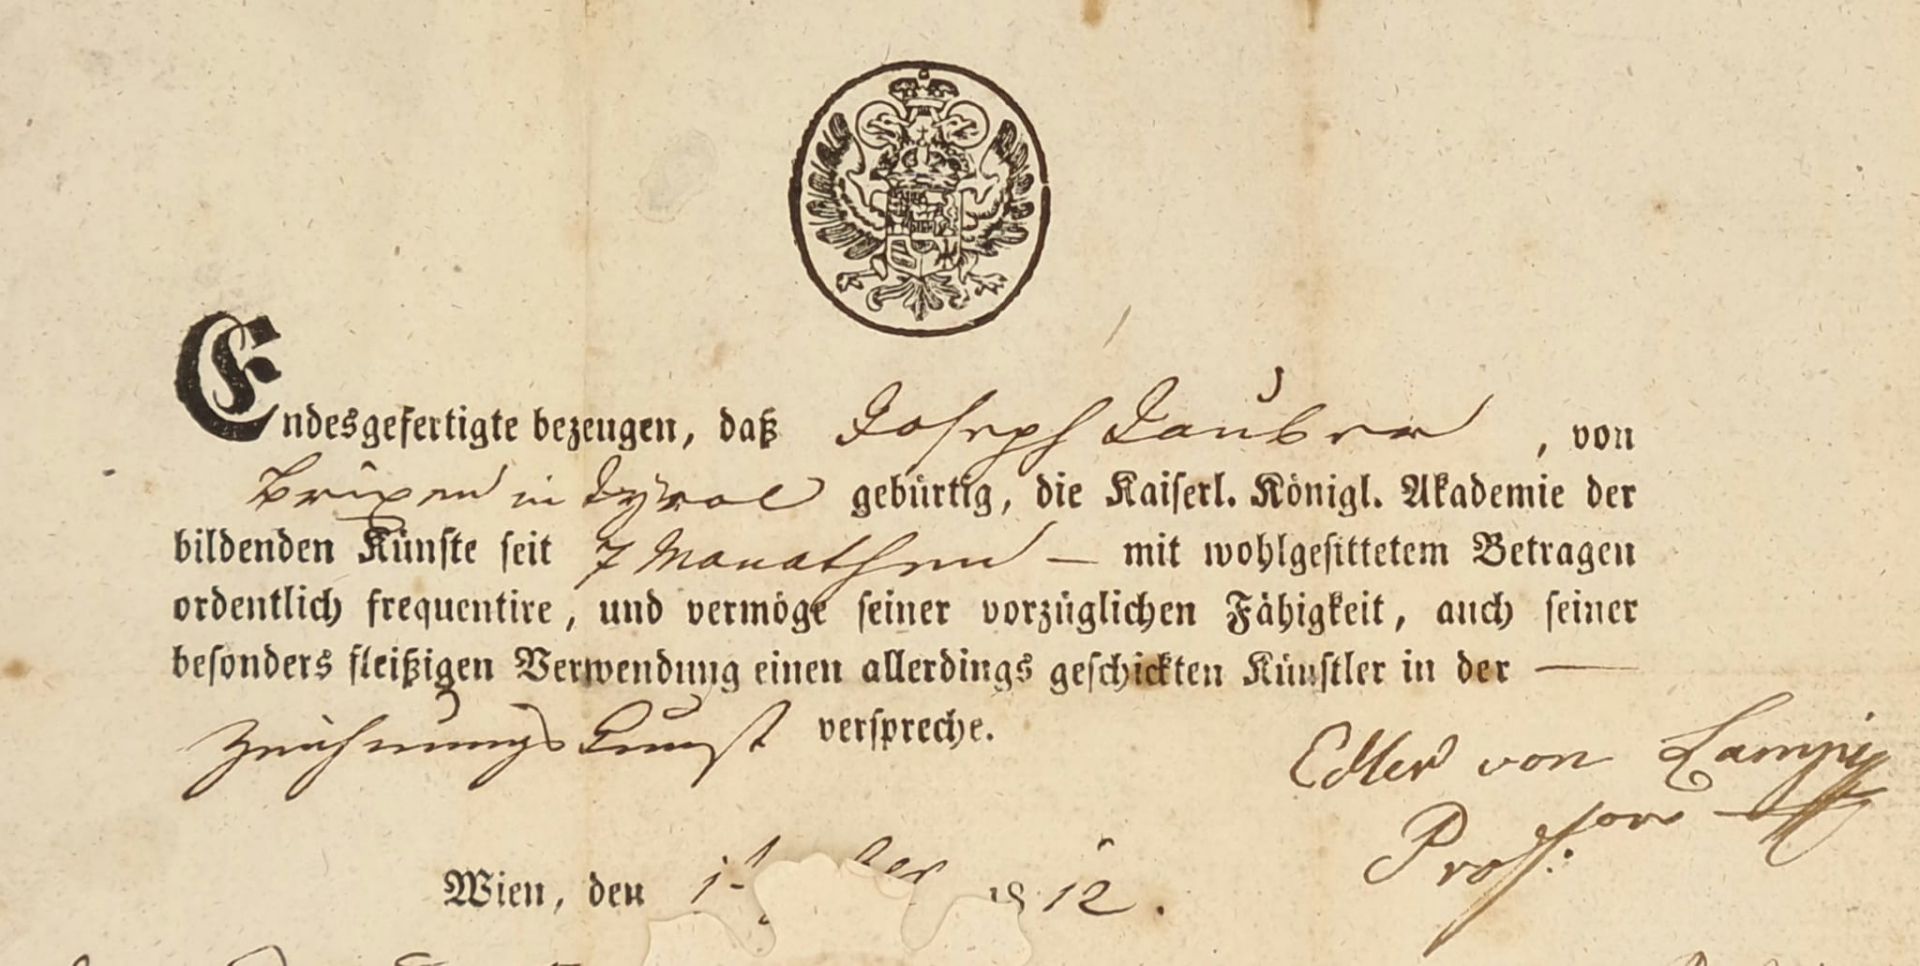 Endesgefertigte bezeugen, daß Joseph Tauber, von
Brixen in Tÿrol gebürtig, die Kaiserl. Königl. Akademie der
bildenden Künste seit 7 Monathen — mit wohlgesittetem Betragen
ordentlich frequentire, und vermöge seiner vorzüglichen Fähigkeit, auch seiner
besonders fleißigen Verwendung einen allerdings geschickten Künstler in der —
Zeichnungs Kunst verspreche.
Edler von Lampi
Professor
Wien, den 1812.